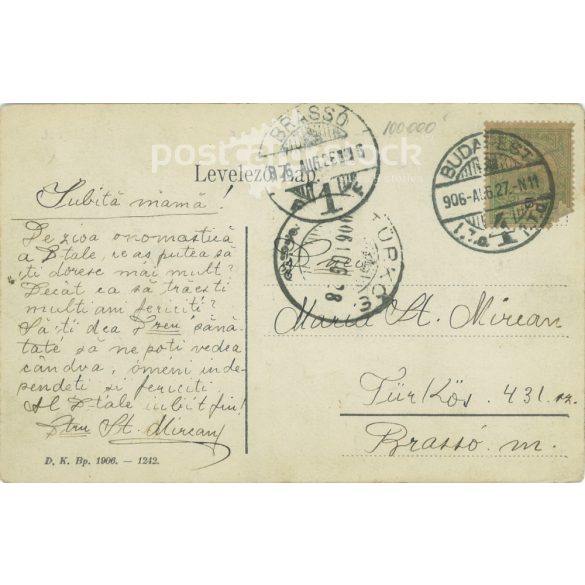 100.000
BRASSÓ
1
BUDAPEST
906-AUG.27.-N11
1
TÜRKÖS
906 AUG 28
Levelező-Lap.
Iubită mamă!
De ziua onomastică
a D-tale, ce aș putea să
îți doresc mai mult?
Decât ca să trăești
mulți ani fericiți!
Să-ți dea D-zeu sănă-
tate să ne poți vedea
cândva, ómeni inde-
pendeți și fericiți
Al D-tale iubit fiu!
St. Mircan
Maria St. Mircan
Türkös. 431. sz.
Brassó. m.
D. K. Bp. 1906. — 1242.